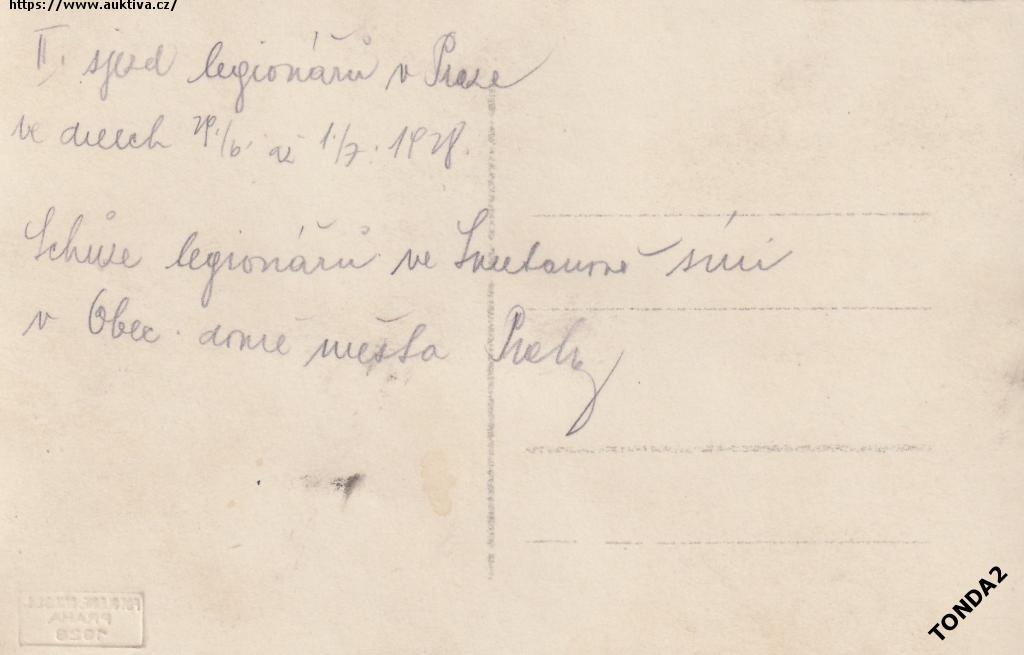 https://www.auktiva.cz/
II. sjezd legionářů v Praze
ve dnech 29./6. až 1./7. 1928.
Schůze legionářů ve Smetanově síni
v Obec. domě města Prahy
PRAHA
1928
TONDA2